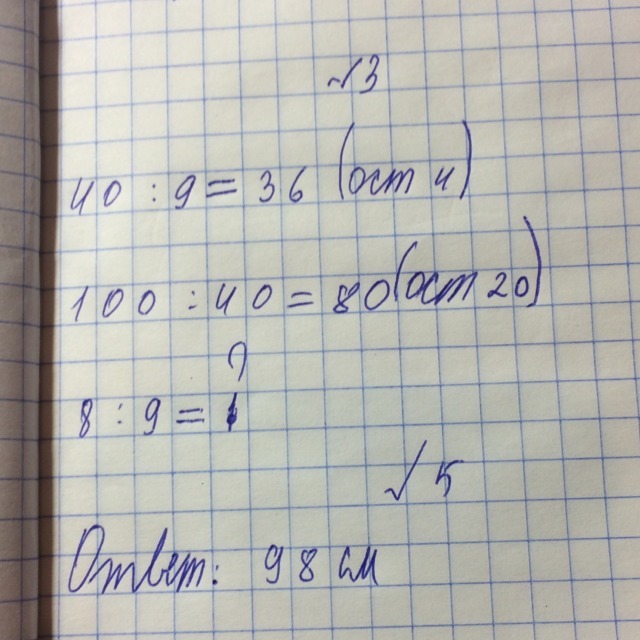 №3
40 : 9 = 36 (ост 4)
100 : 40 = 80 (ост 20)
?
8 : 9 = 1
√ 5
Ответ: 98 см